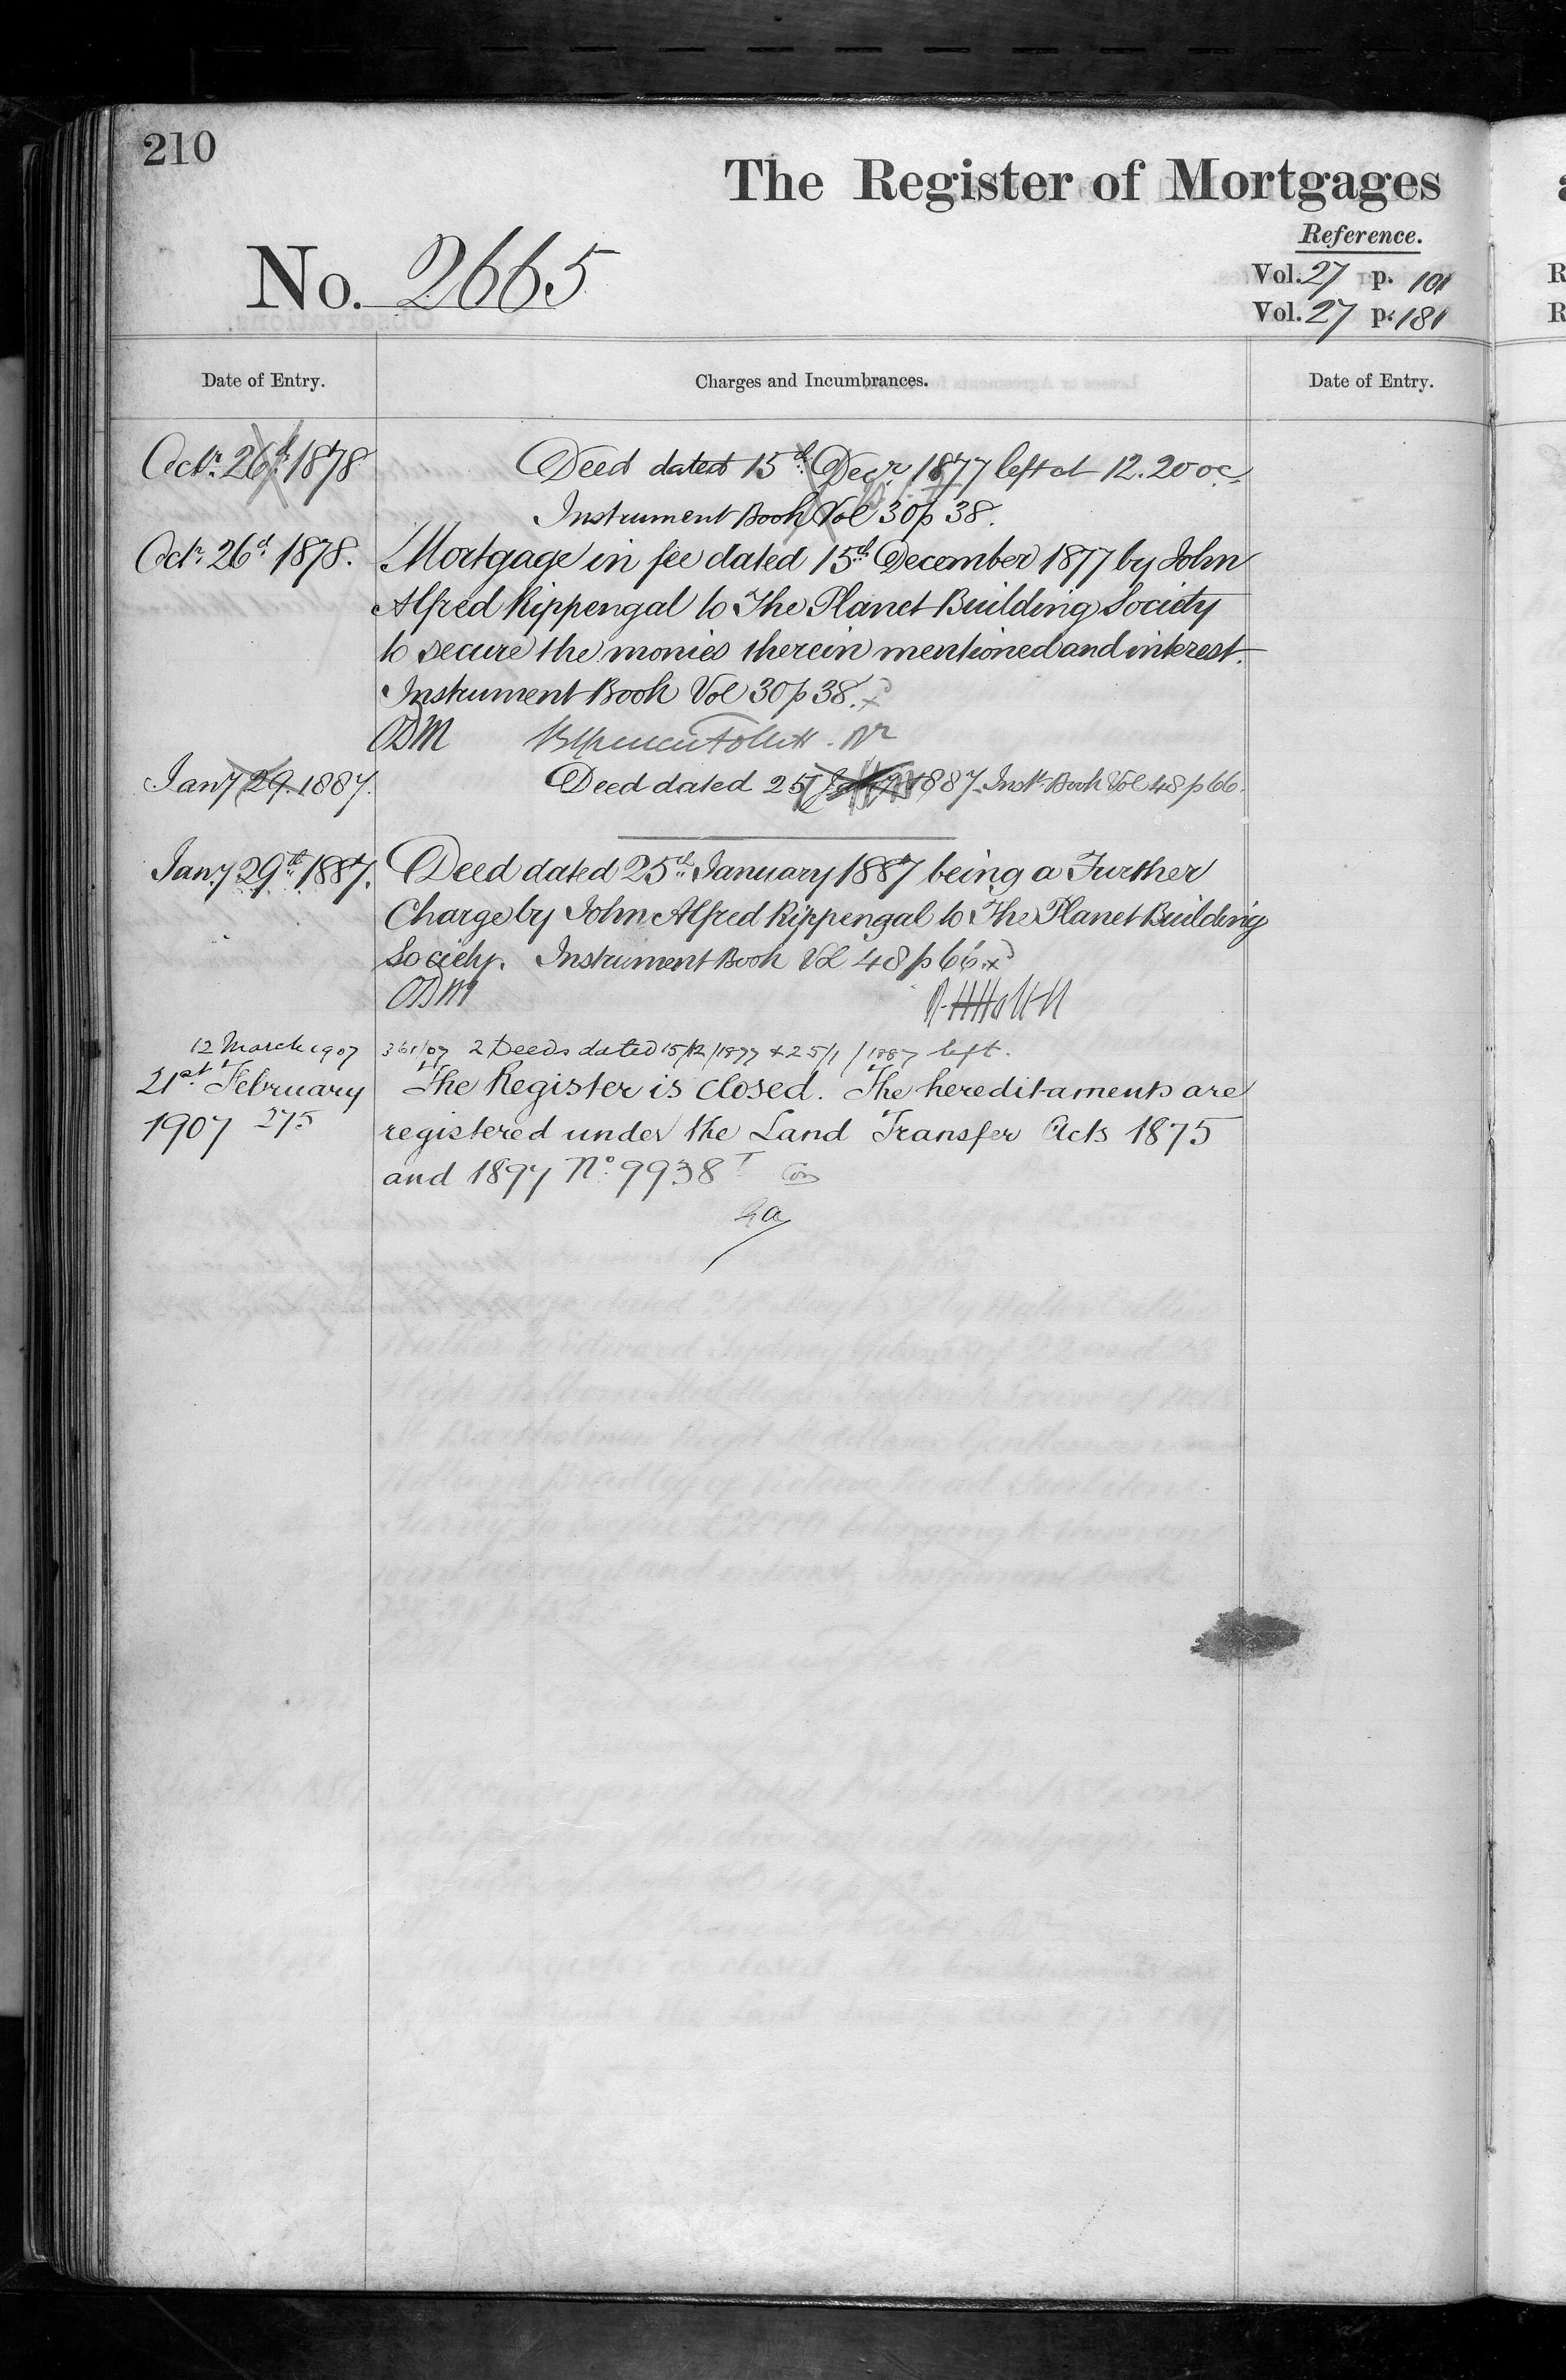 210
The Register of Mortgages
Reference.
No. 2665
Vol. 27 p. 101
Vol. 27 p. 181
Date of Entry.
Charges and Incumbrances.
Date of Entry.
Octr. 26th 1878
Deed dated 15th Decr. 1877 left at 12.20 oc.
Instrument Book Vol 30 p 38.
Octr. 26th 1878.
Mortgage in fee dated 15th December 1877 by John
Alfred Rippengal to The Planet Building Society
to secure the monies therein mentioned and interest.
Instrument Book Vol 30 p 38.
ODM
Jany 29. 1887.
Deed dated 25 Jany 1887. Inst. Book Vol 48 p 66.
Jany 29th 1887.
Deed dated 25th January 1887 being a Further
Charge by John Alfred Rippengal to The Planet Building
Society. Instrument Book Vol 48 p 66.
ODM
12 March 1907
361/07 2 Deeds dated 15/12/1877 & 25/1/1887 left.
21st February
1907 275
The Register is closed. The hereditaments are
registered under the Land Transfer Acts 1875
and 1897 No. 9938